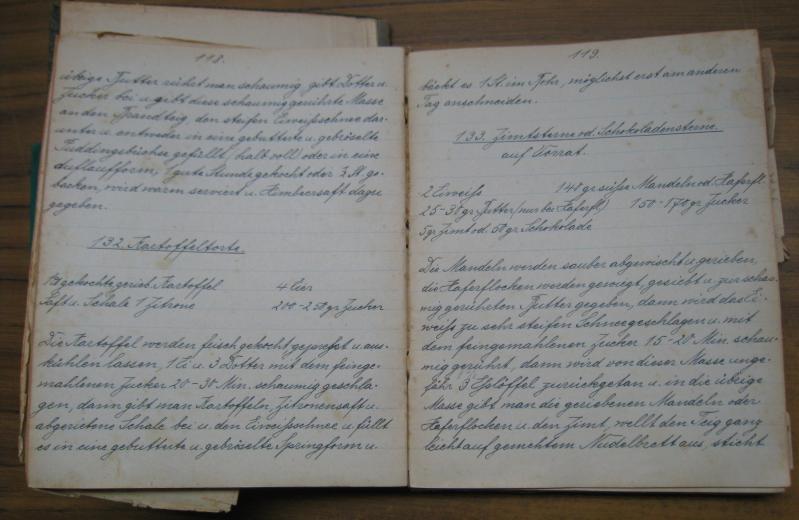 118.
übrige Butter rührt man schaumig, gibt Dotter u.
Zucker bei u. gibt diese schaumig gerührte Masse
an den Brandteig den steifen Eiweißschnee dar-
unter u. entweder in eine gebutterte u. gebröselte
Puddingsbüchse gefüllt (halb voll) oder in eine
Auflaufform, 1 gute Stunde gekocht oder ¾ St. ge-
backen, wird warm serviert u. Himbeersaft dazu
gegeben.
132. Kartoffeltorte.
gekochte gerieb. Kartoffel 4 Eier
Saft u. Schale 1 Zitrone 200-250 gr Zucker
Die Kartoffel werden frisch gekocht gepresst u. aus-
kühlen lassen, 1 Ei u. 3 Dotter mit dem feinge-
mahlenen Zucker 20-30 Min. schaumig geschla-
gen, dann gibt man Kartoffeln, Zitronensaft u.
abgeriebene Schale bei u. den Eiweißschnee u. füllt
es in eine gebutterte u. gebröselte Springform u.
119.
bäckt es 1 St. im Rohr, möglichst erst am anderen
Tag anschneiden.
133. Zimtsterne od. Schokoladensterne.
auf Vorrat.
2 Eiweiß 140 gr süße Mandeln od. Haferfl.
25-30 gr Butter (nur bei Haferfl.) 150-170 gr Zucker
5 gr Zimt od. 50 gr Schokolade
Die Mandeln werden sauber abgewischt u. gerieben,
die Haferflocken werden gewiegt, gesiebt u. zur schau-
mig gerührten Butter gegeben, dann wird das Ei-
weiß zu sehr steifen Schnee geschlagen u. mit
dem feingemahlenen Zucker 15-20 Min. schau-
mig gerührt, dann wird von dieser Masse unge-
fähr 3 Eßlöffel zurückgetan u. in die übrige
Masse gibt man die geriebenen Mandeln oder
Haferflocken u. den Zimt, wellt den Teig ganz
leicht auf gemehltem Nudelbrett aus, sticht